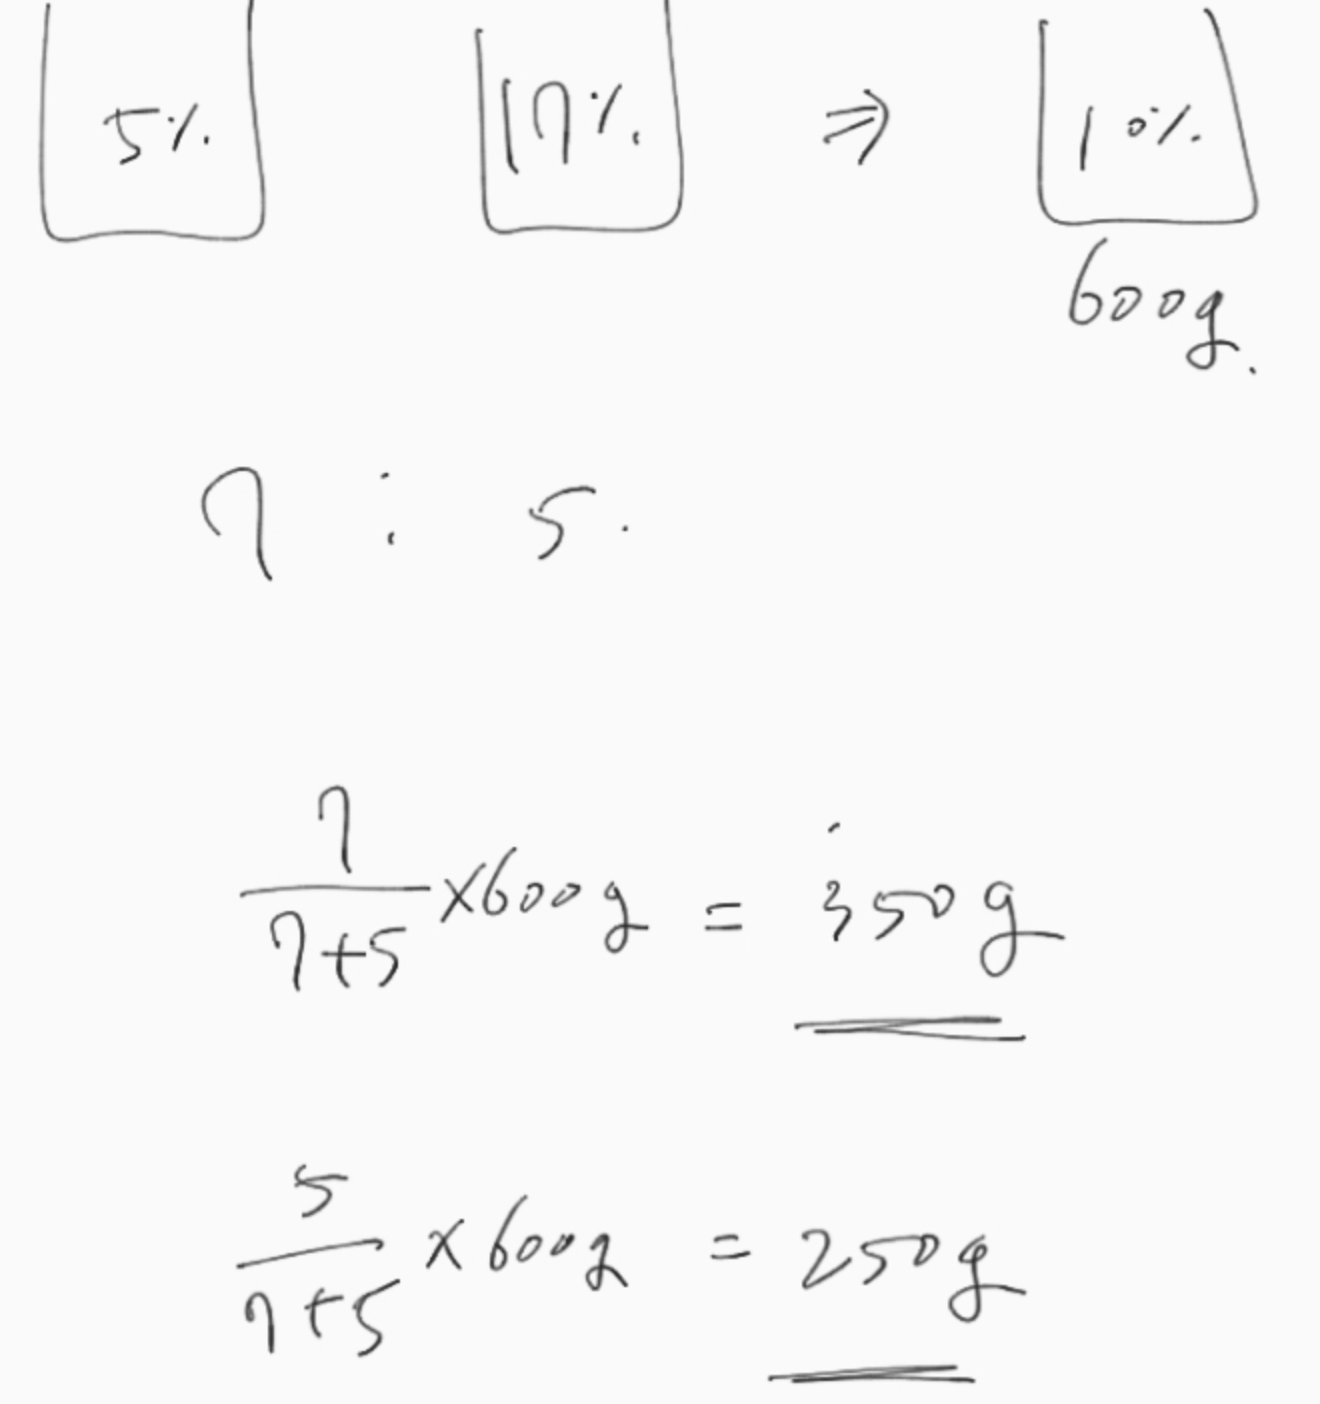 5% 17% ⇒ 10%
600g.
7 : 5.
7/(7+5) ×600g = 350g
5/(7+5) ×600g = 250g